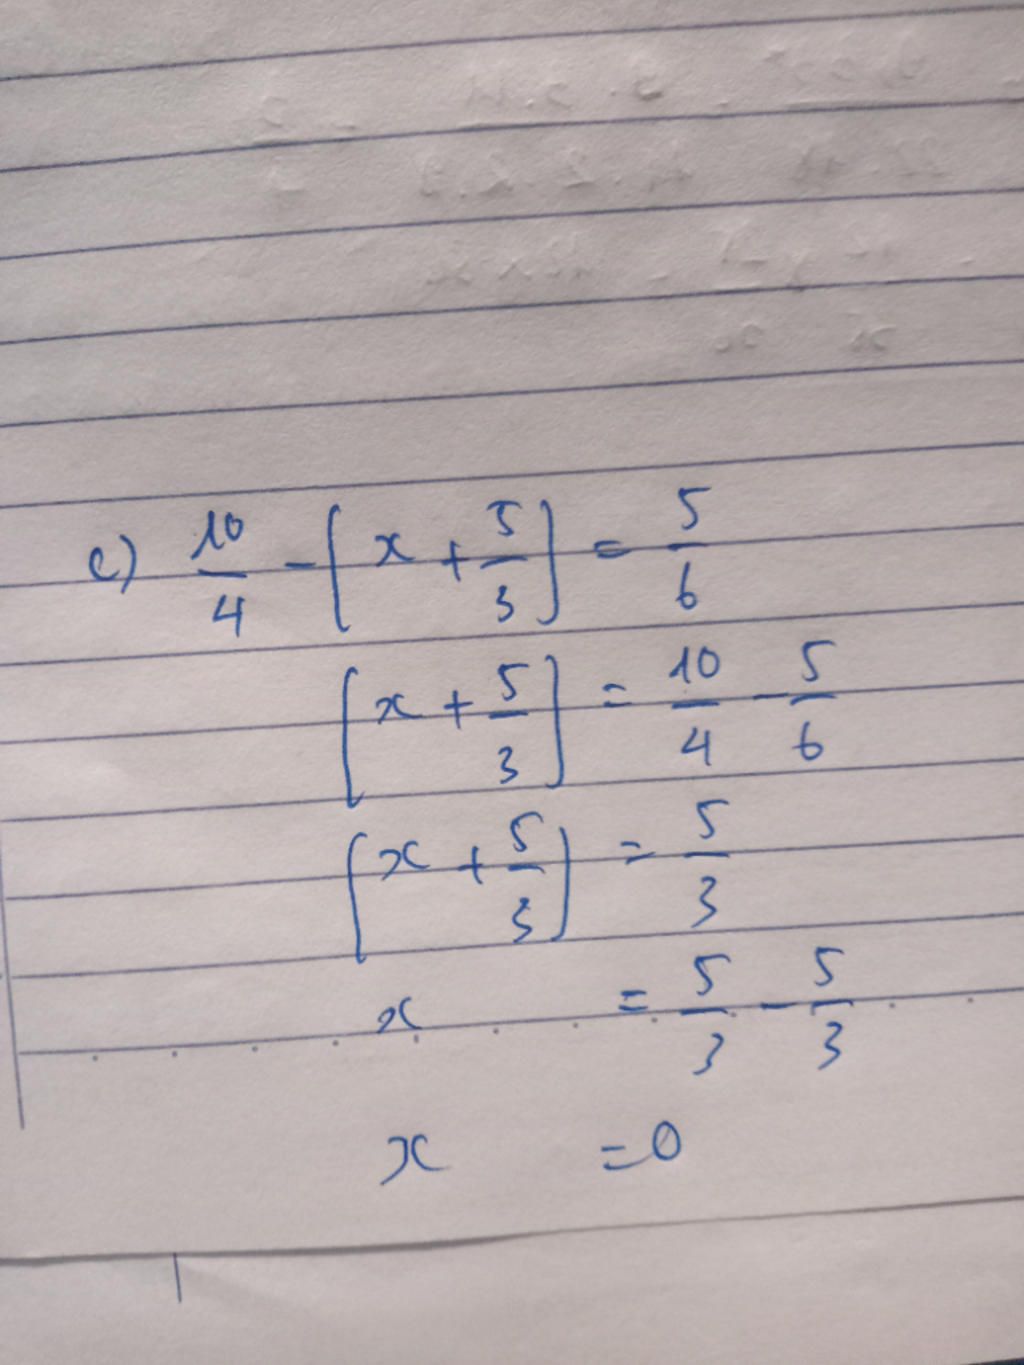 c) 10/4 - [x + 5/3] = 5/6
[x + 5/3] = 10/4 - 5/6
[x + 5/3] = 5/3
x = 5/3 - 5/3
x = 0